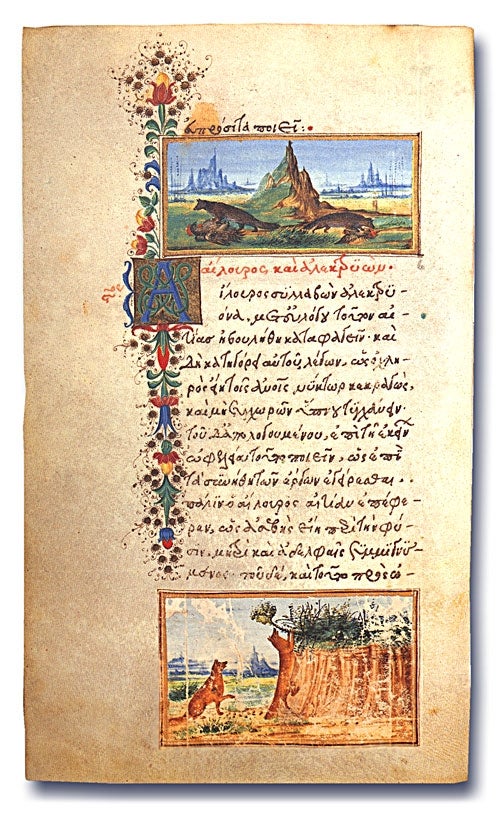 εὐπρόσιτα ποιεῖ:•
αἴλουρος, καὶ ἀλεκτρυών.
Αἴλουρος συλλαβὼν ἀλεκτρυ-
όνα, μετ' εὐλόγου τοῦτον αἰ-
τίας ἠβουλήθη καταφαγεῖν· καὶ
δὴ κατηγόρει αὐτοῦ λέγων, ὡς ὀχλη-
ρὸς εἴη τοῖς ἀνοῖς νύκτωρ κεκραγώς,
καὶ μὴ συγχωρῶν ὕπνου τυγχάνειν·
τοῦ δ' ἀπολογουμένου, ἐπὶ τῇ ἐκείνων
ὠφελείᾳ τοῦτο ποιεῖν, ὡς ἐπὶ
τὰ συνήθη τῶν ἔργων ἐγείρεσθαι.
πάλιν ὁ αἴλουρος αἰτίαν ἐπέφε-
ρεν, ὡς ἀσεβὴς εἴη περὶ τὴν φύ-
σιν, μητρὶ καὶ ἀδελφαῖς συμμιγνύ-
μενος· τοῦ δὲ, καὶ τοῦτο πρὸς ὠ-